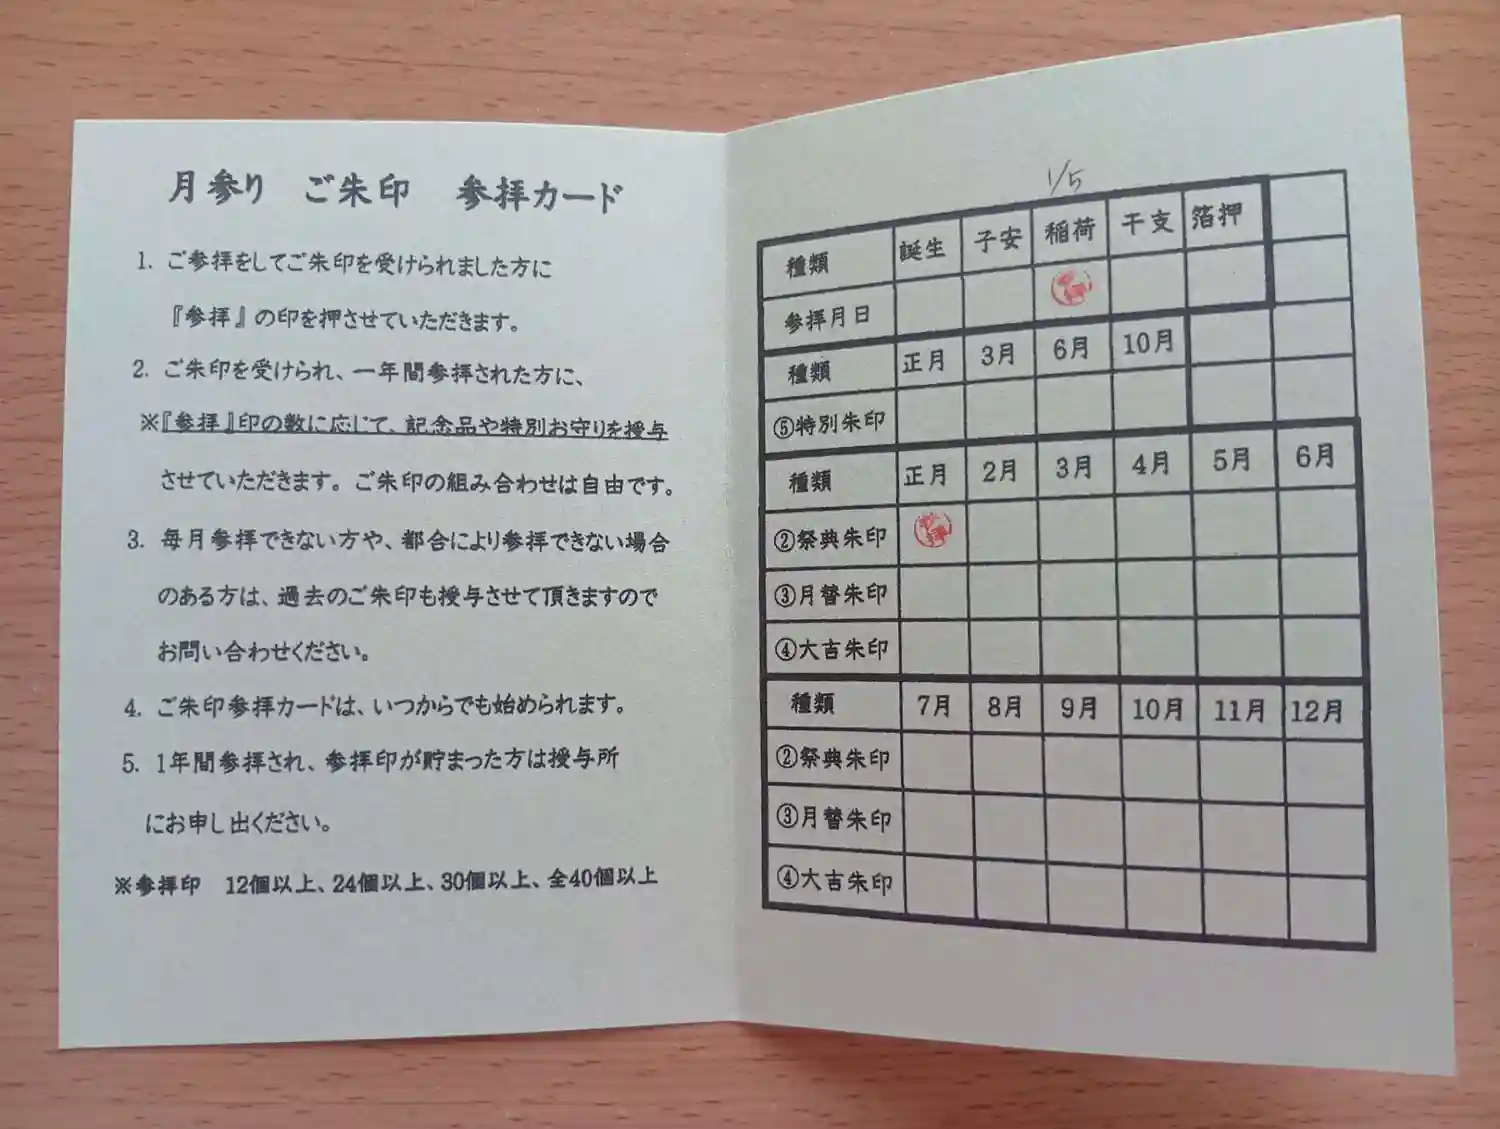 月参り　ご朱印　参拝カード
1. ご参拝をしてご朱印を受けられました方に
『参拝』の印を押させていただきます。
2. ご朱印を受けられ、一年間参拝された方に、
※『参拝』印の数に応じて、記念品や特別お守りを授与
させていただきます。ご朱印の組み合わせは自由です。
3. 毎月参拝できない方や、都合により参拝できない場合
のある方は、過去のご朱印も授与させて頂きますので
お問い合わせください。
4. ご朱印参拝カードは、いつからでも始められます。
5. 1年間参拝され、参拝印が貯まった方は授与所
にお申し出ください。
※参拝印　12個以上、24個以上、30個以上、全40個以上
1/5
種類 誕生 子安 稲荷 干支 箔押
参拝月日
種類 正月 3月 6月 10月
⑤特別朱印
種類 正月 2月 3月 4月 5月 6月
②祭典朱印
③月替朱印
④大吉朱印
種類 7月 8月 9月 10月 11月 12月
②祭典朱印
③月替朱印
④大吉朱印